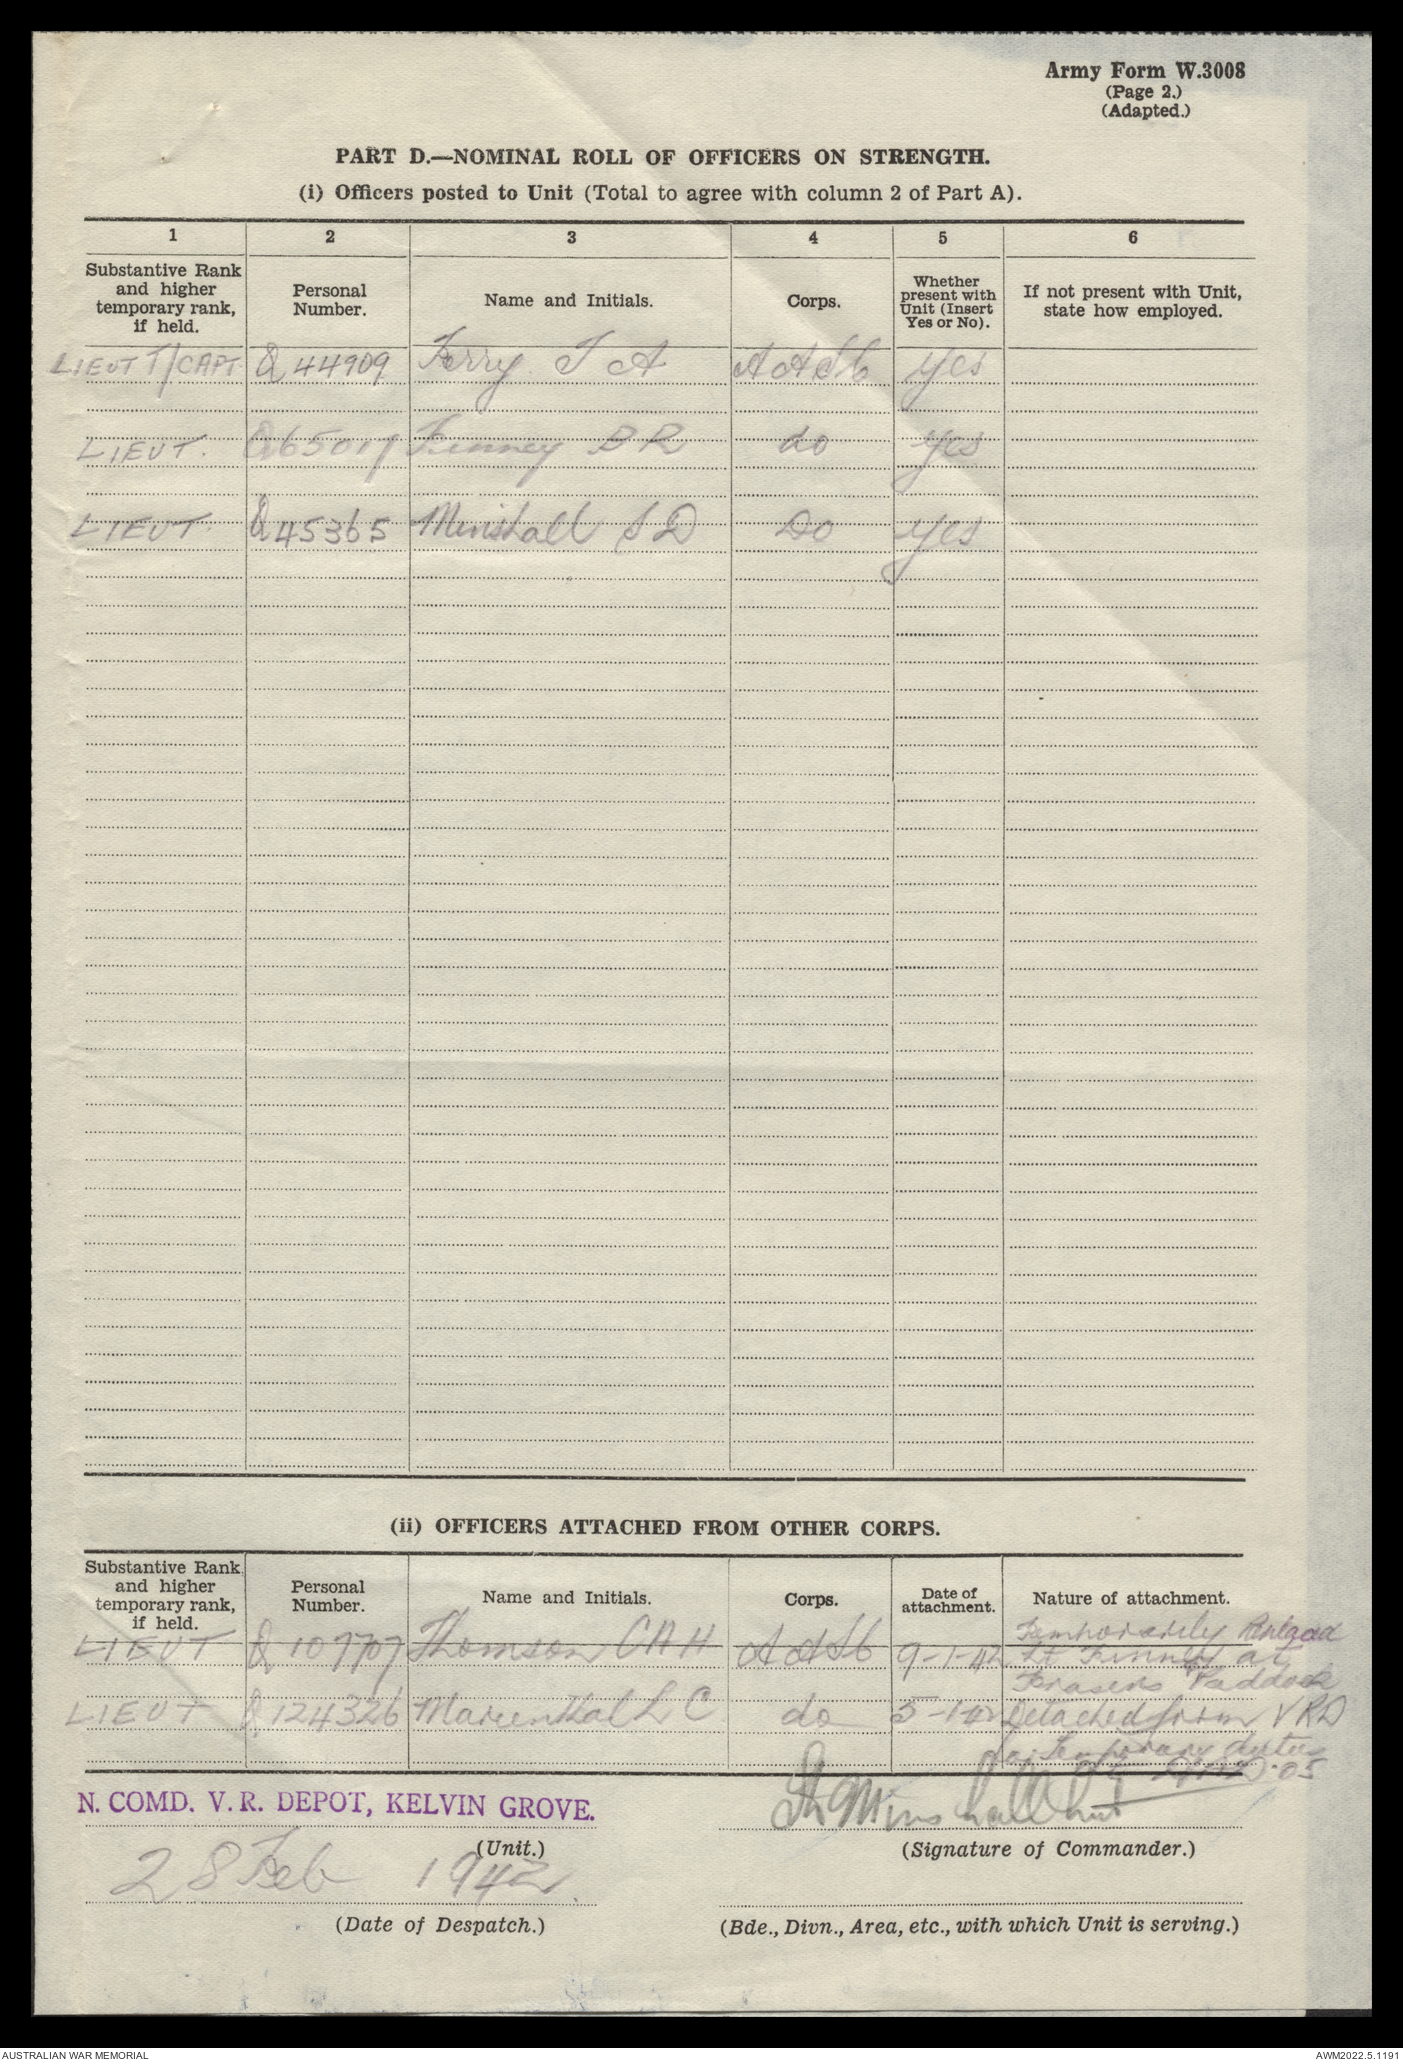 Army Form W.3008
(Page 2.)
(Adapted.)
PART D.—NOMINAL ROLL OF OFFICERS ON STRENGTH.
(i) Officers posted to Unit (Total to agree with column 2 of Part A).
1 2 3 4 5 6
Substantive Rank and higher temporary rank, if held. Personal Number. Name and Initials. Corps. Whether present with Unit (Insert Yes or No). If not present with Unit, state how employed.
LIEUT T/CAPT Q 44909 Ferry T A AASC yes
LIEUT. Q65017 Finney B R do yes
LIEUT. Q45365 Minshall S D Do yes
(ii) OFFICERS ATTACHED FROM OTHER CORPS.
Substantive Rank and higher temporary rank, if held. Personal Number. Name and Initials. Corps. Date of attachment. Nature of attachment.
LIEUT Q 107707 Thomson C A H AASC 9-1-42 Temporarily
Lt Finney at
Frasers Paddock
LIEUT Q124326 Marienthal L C do 5-1-42 Detached from VRD
temporary duties
N. COMD. V. R. DEPOT, KELVIN GROVE. Minshall Lieut
(Unit.) (Signature of Commander.)
28 Feb 1942.
(Date of Despatch.) (Bde., Divn., Area, etc., with which Unit is serving.)
AUSTRALIAN WAR MEMORIAL AWM2022.5.1191